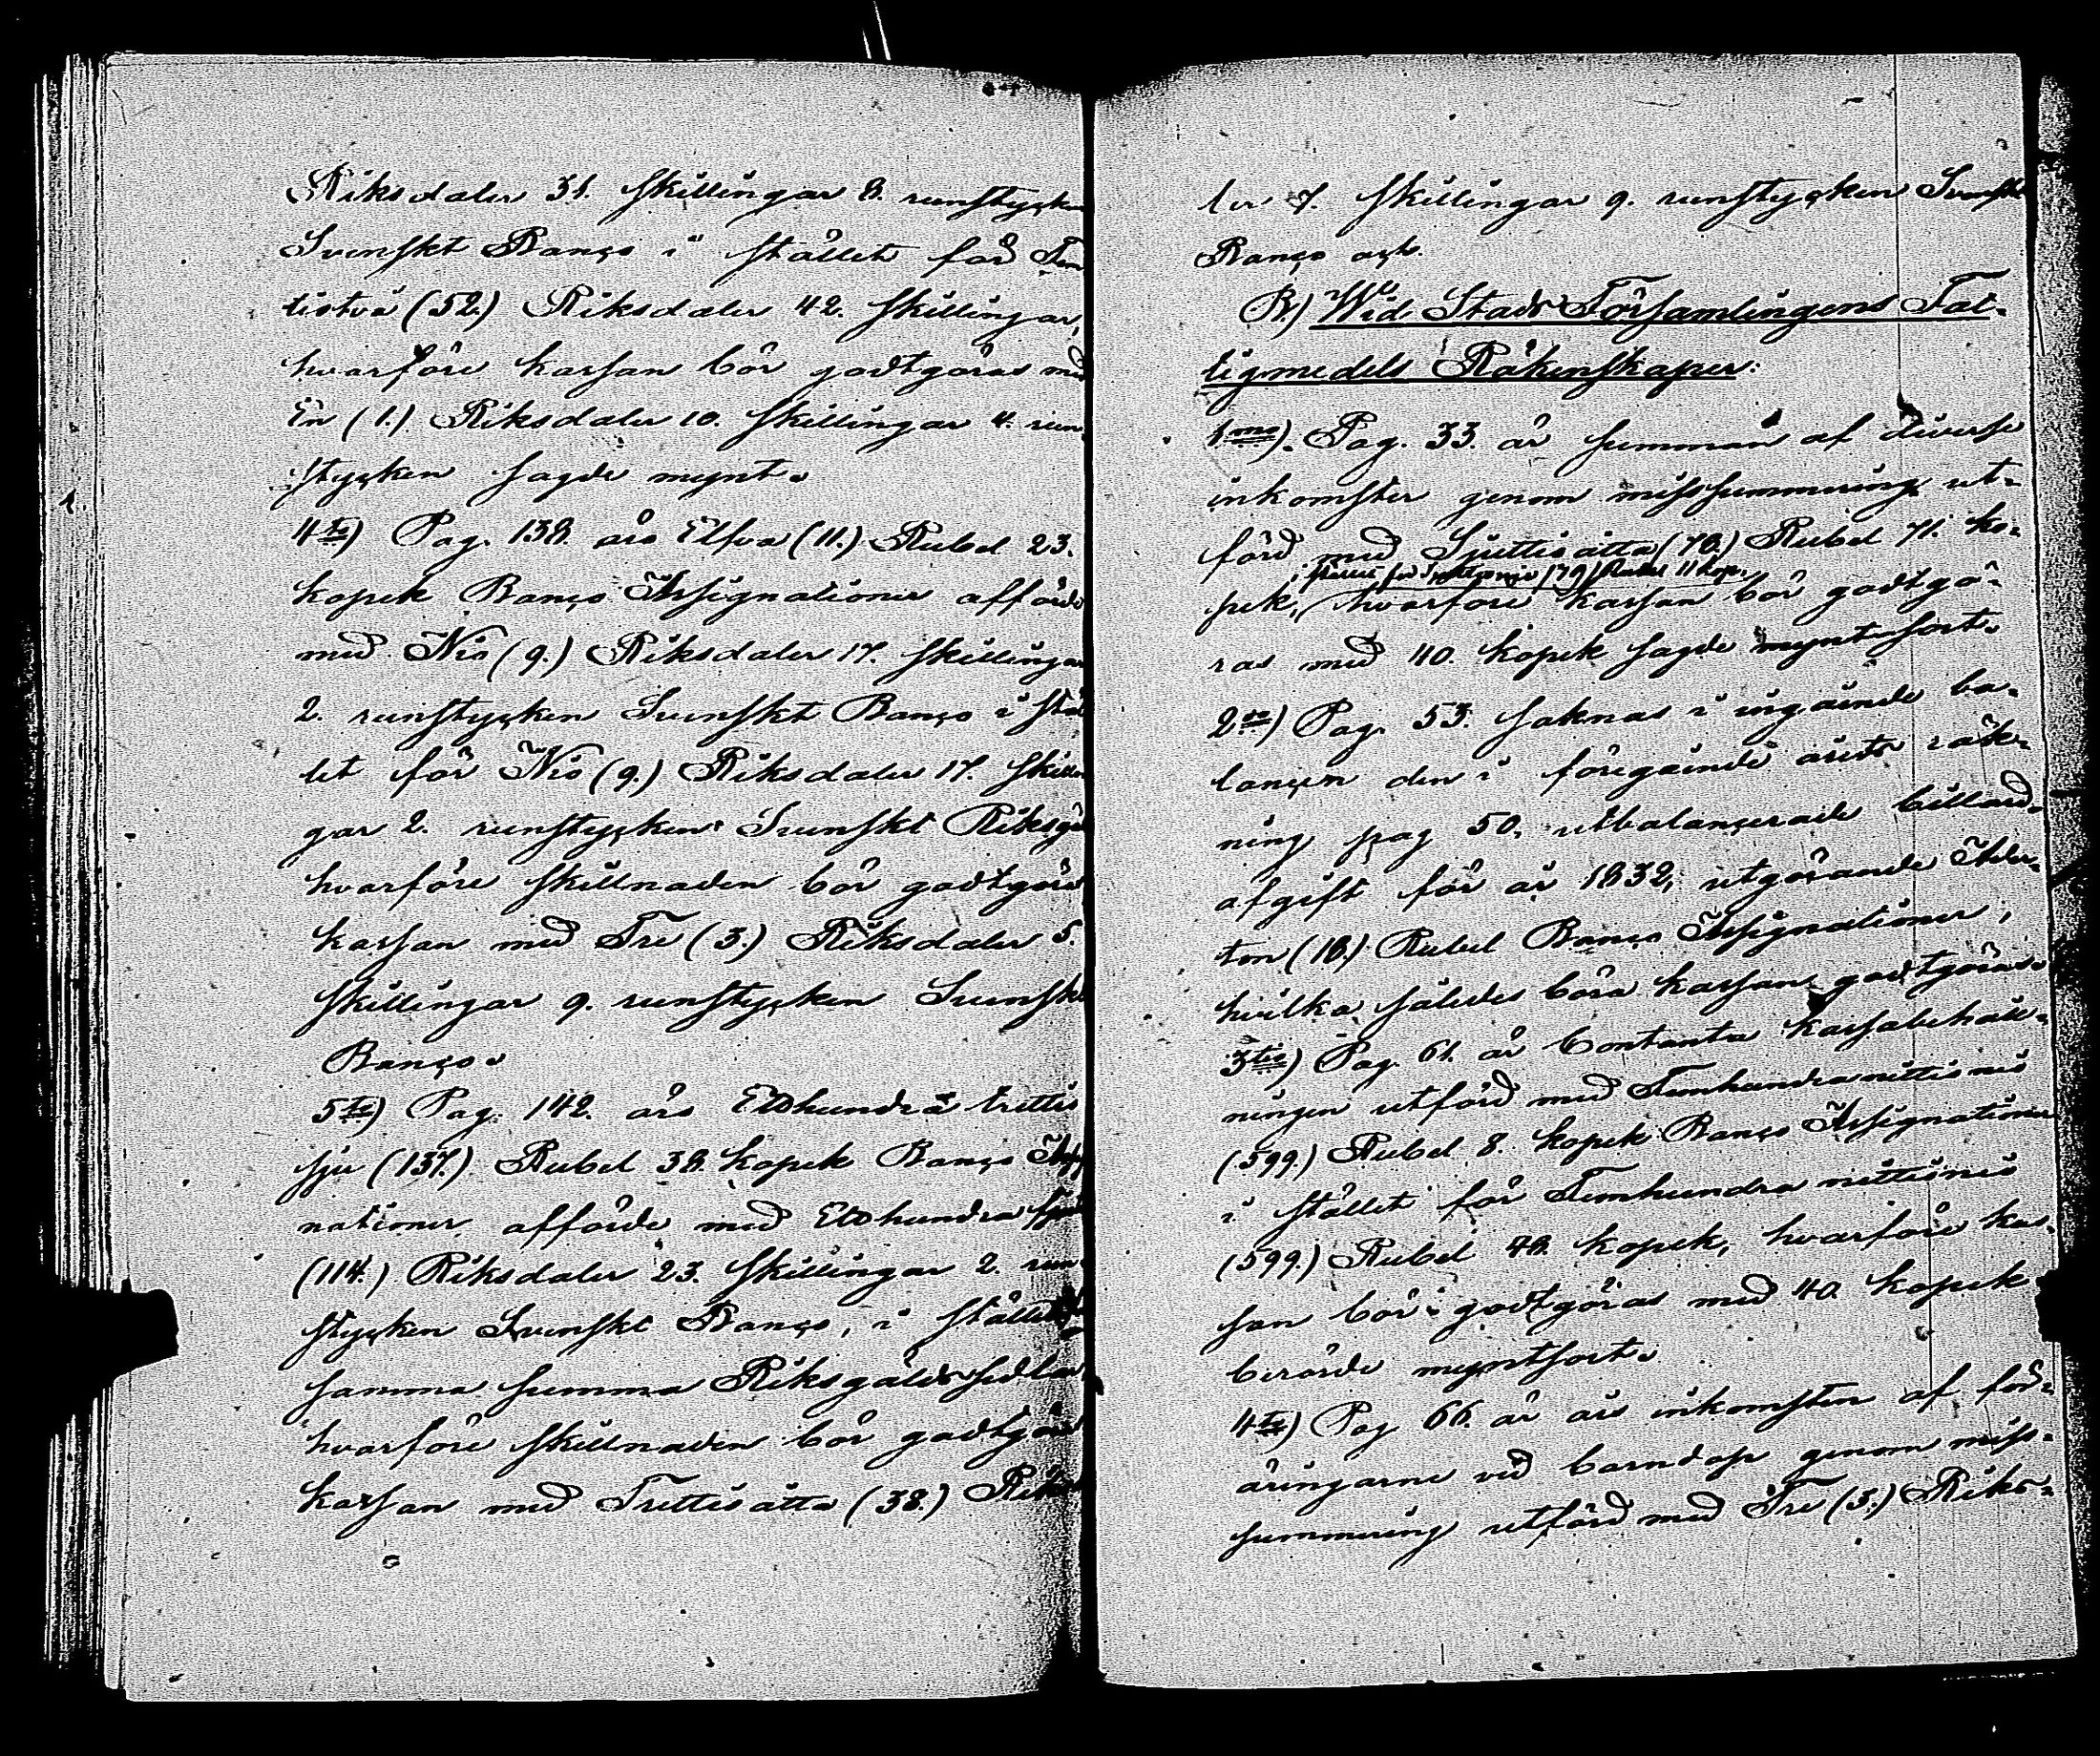 Riksdaler 31. skillingar 8. runstycken
Svenskt Banço i stället för Fem
tiotvå (52.) Riksdaler 42. skillingar,
hvarföre kassan bör godtgöras med
En (1.) Riksdaler 10. skillingar 4. run-
stycken sagde mynt.
4to) Pag. 138. äro Elfva (11.) Rubel 23.
kopek Banço Assignationer afförde
med Nio (9.) Riksdaler 17. skillingar
2. runstycken Svenskt Banço i stäl
let för Nio (9.) Riksdaler 17. skillin
gar 2. runstycken Svenskt Riksgä
hvarföre skillnaden bör godtgöras
kassan med Tre (3.) Riksdaler 5.
skillingar 9. runstycken Svenskt
Banço.
5to) Pag. 142. äro Etthundra trettio
sju (137.) Rubel 38. kopek Banço Assig
nationer afförde med Etthundra fjor
(114.) Riksdaler 23. skillingar 2. run
stycken Svenskt Banço, i stället
samma summa Riksgälds sedlar
hvarföre skillnaden bör godtgöras
kassan med Trettioåtta (38.) Riksd
ler 7. skillingar 9. runstycken Svenskt
Banço och.
B.) Wid Stads Församlingens Fat-
tigmedels Räkenskaper:
1mo). Pag. 33. är summan af diverse
inkomster genom missummering ut-
förd med Sjuttioåtta (78.) Rubel 71. ko-
stället för Sjuttionio (79) Rubel 11 kop.
pek, hvarföre kassan bör godtgö-
ras med 40. kopek sagde myntsort.
2do) Pag. 53. saknas i ingående ba-
lançen den i föregående årets räk-
ning pag 50, utbalançerade billard-
afgift för år 1832, utgörande Ader-
ton (18.) Rubel Banço Assignationer,
hvilka således böra kassan godtgöras.
3tio) Pag. 61. är Contanta kassabehåll-
ningen utförd med Femhundranittionio
(599.) Rubel 8. kopek Banço Assignationer
i stället för Femhundra nittionio
(599.) Rubel 48. kopek, hvarföre kas-
san bör godtgöras med 40. kopek
berörde myntsort.
4to) Pag 66. är ais inkomsten af för-
äringarne vid barndop genom miss-
summering utförd med Tre (3.) Riks-